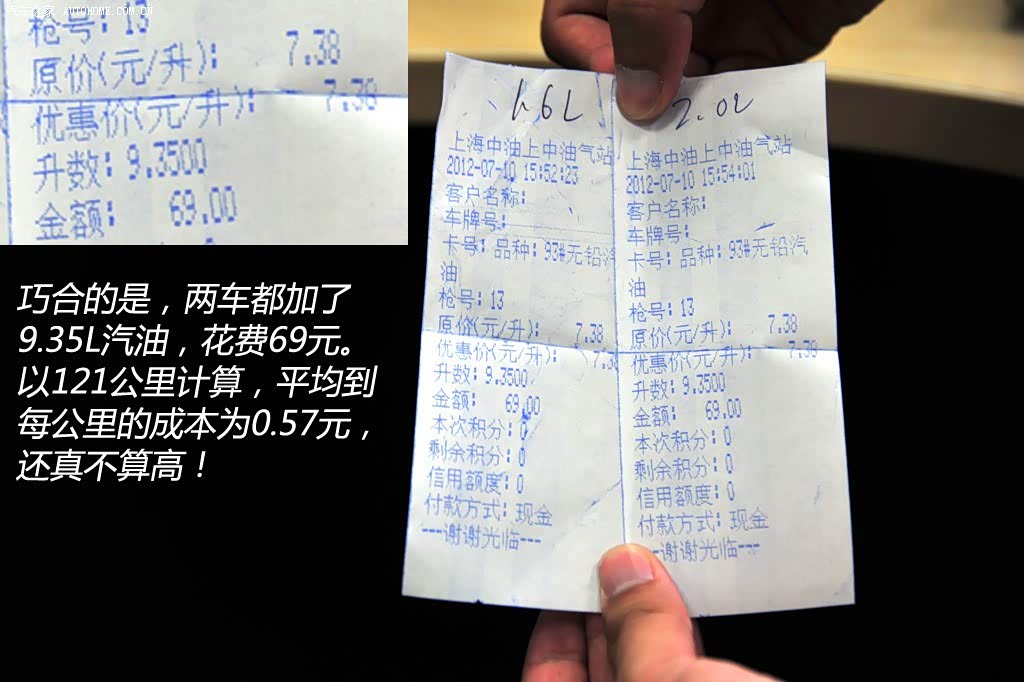 汽车之家 AUTOHOME.COM.CN
枪号：13
原价(元/升)： 7.38
优惠价(元/升)： 7.38
升数：9.3500
金额： 69.00
巧合的是，两车都加了
9.35L汽油，花费69元。
以121公里计算，平均到
每公里的成本为0.57元，
还真不算高！
1.6L
上海中油上中油气站
2012-07-10 15:52:23
客户名称：
车牌号：
卡号：品种：93#无铅汽
油
枪号：13
原价(元/升)： 7.38
优惠价(元/升)： 7.3
升数：9.3500
金额： 69.00
本次积分：0
剩余积分：0
信用额度：0
付款方式：现金
---谢谢光临---
2.0L
上海中油上中油气站
2012-07-10 15:54:01
客户名称：
车牌号：
卡号：品种：93#无铅汽
油
枪号：13
原价(元/升)： 7.38
优惠价(元/升)： 7.38
升数：9.3500
金额： 69.00
本次积分：0
剩余积分：0
信用额度：0
付款方式：现金
--谢谢光临---